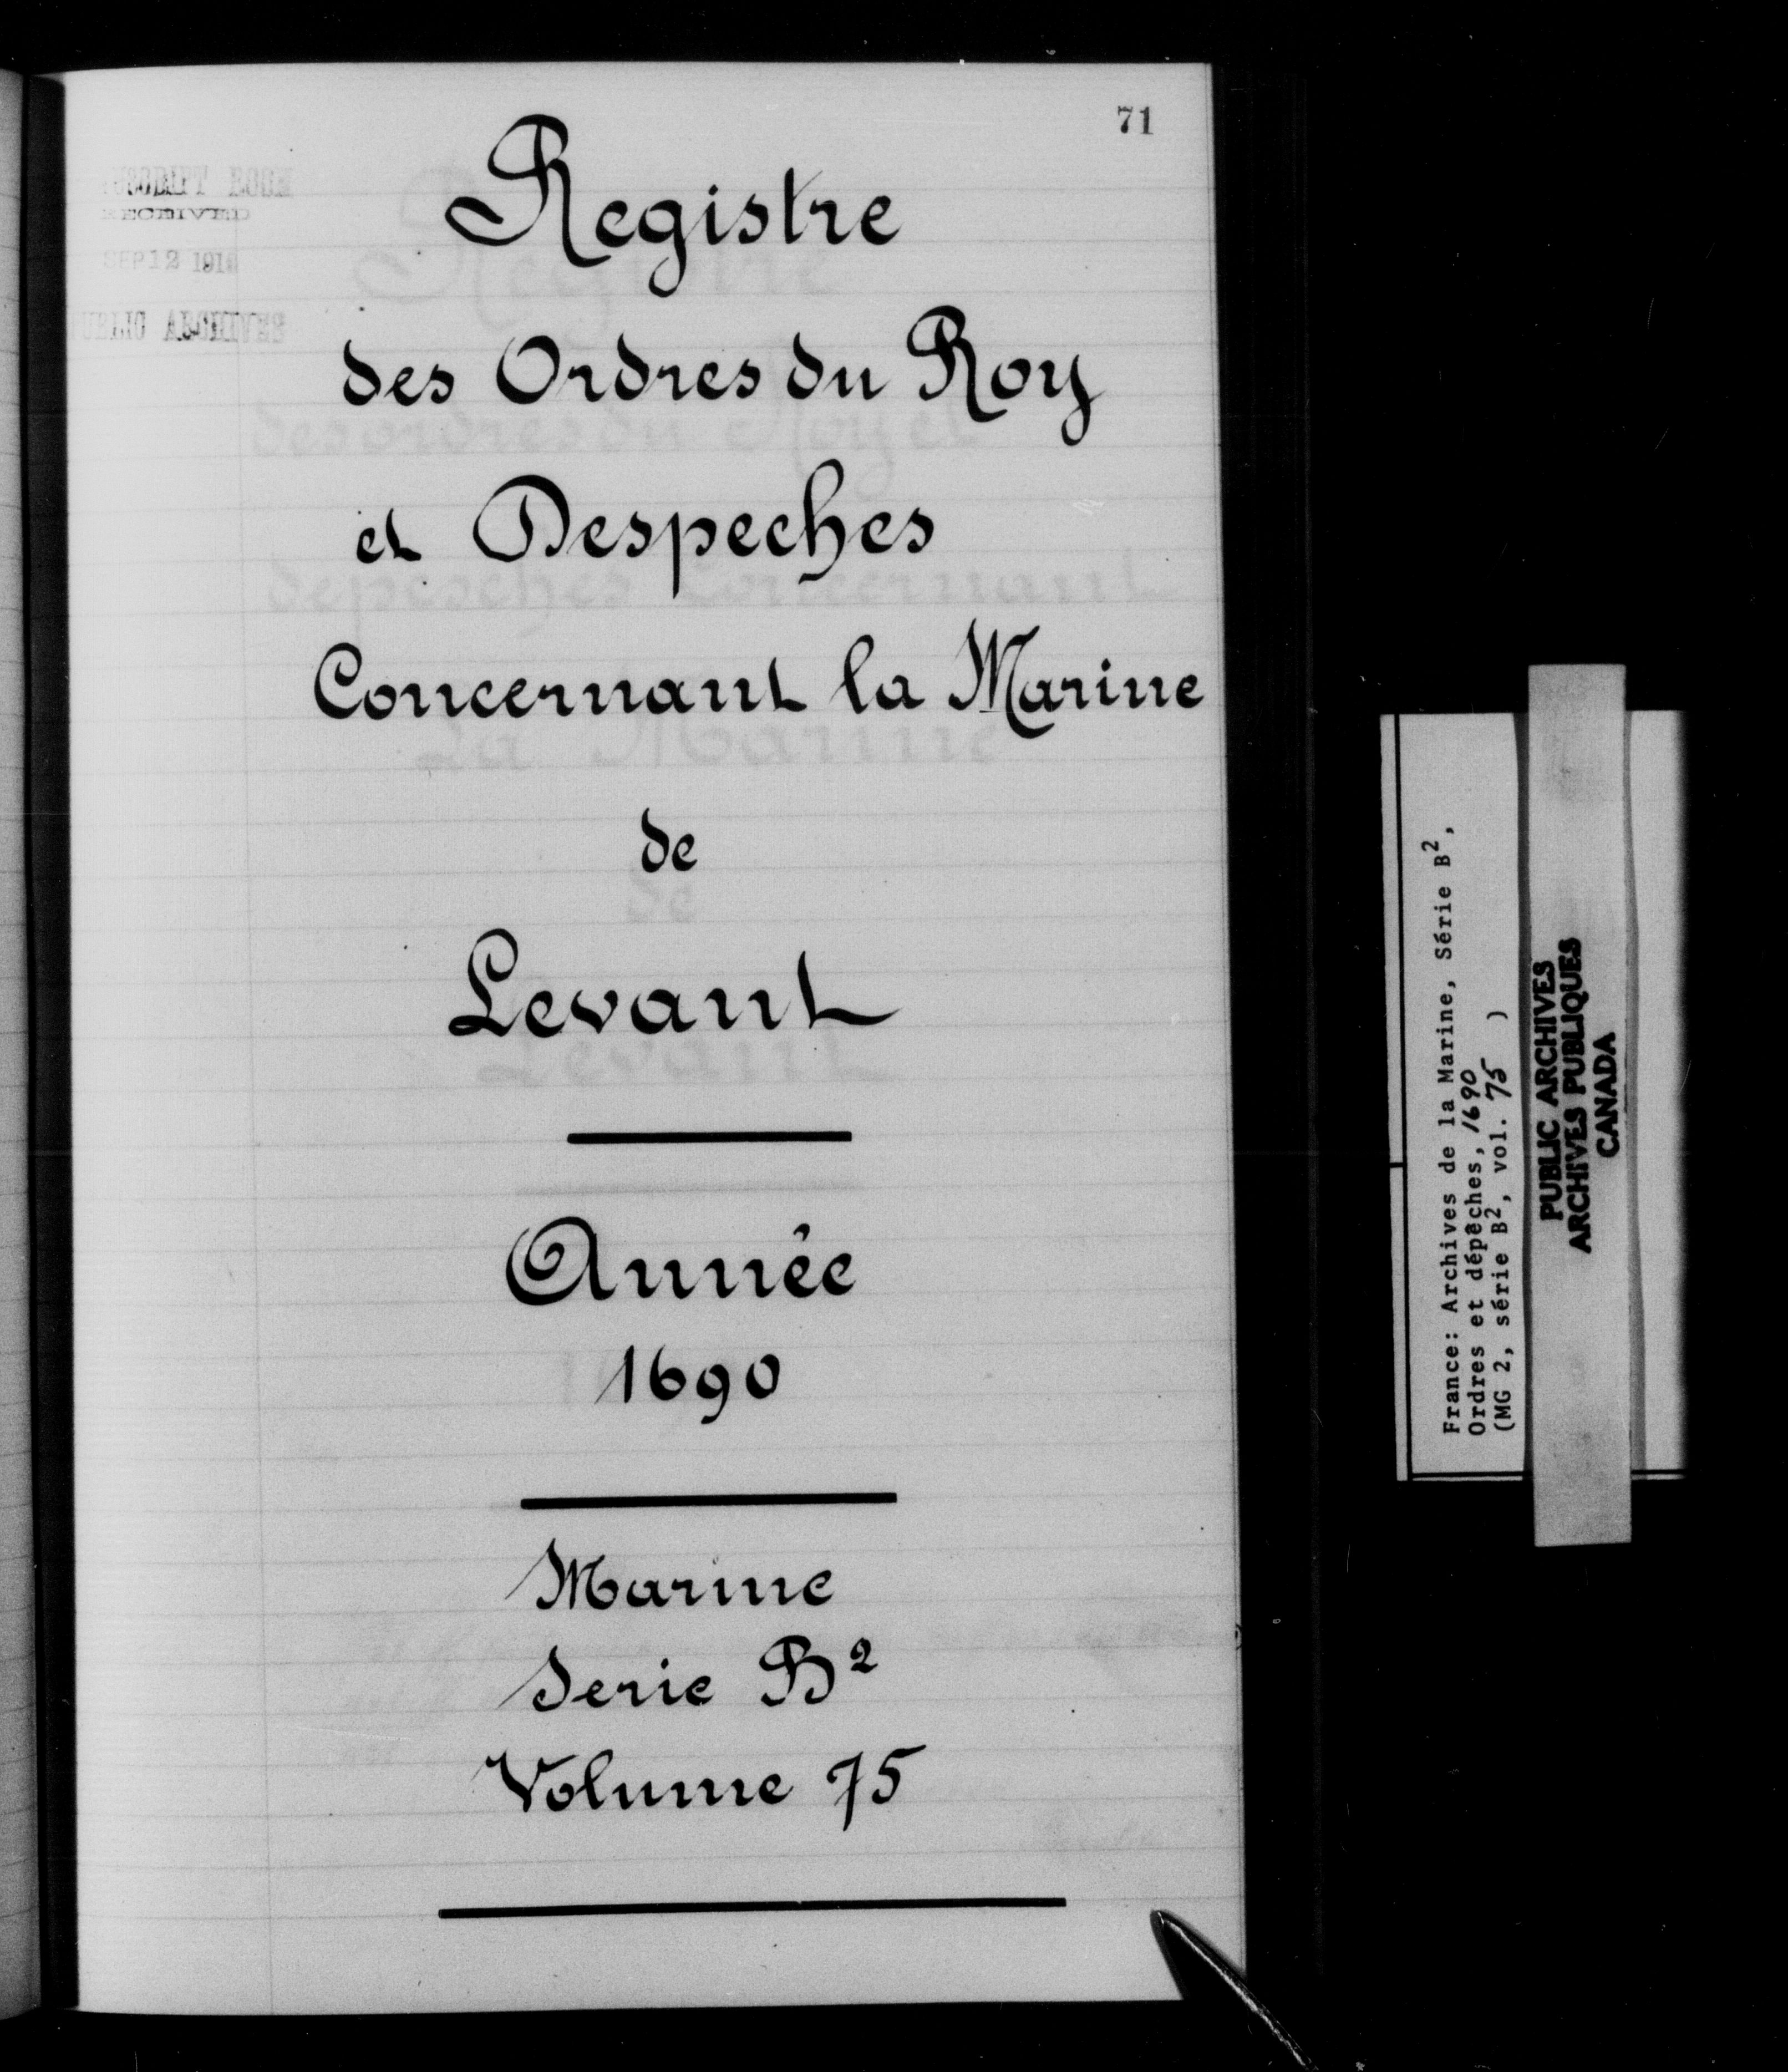 71
RECEIVED
SEP 12 191
PUBLIC ARCHIVES
Registre
des Ordres du Roy
et Despeches
Concernant la Marine
de
Levant
Année
1690
Marine
Serie B²
Volume 75
France: Archives de la Marine, Série B²,
Ordres et dépêches, 1690
(MG 2, série B², vol. 75 )
PUBLIC ARCHIVES
ARCHIVES PUBLIQUES
CANADA